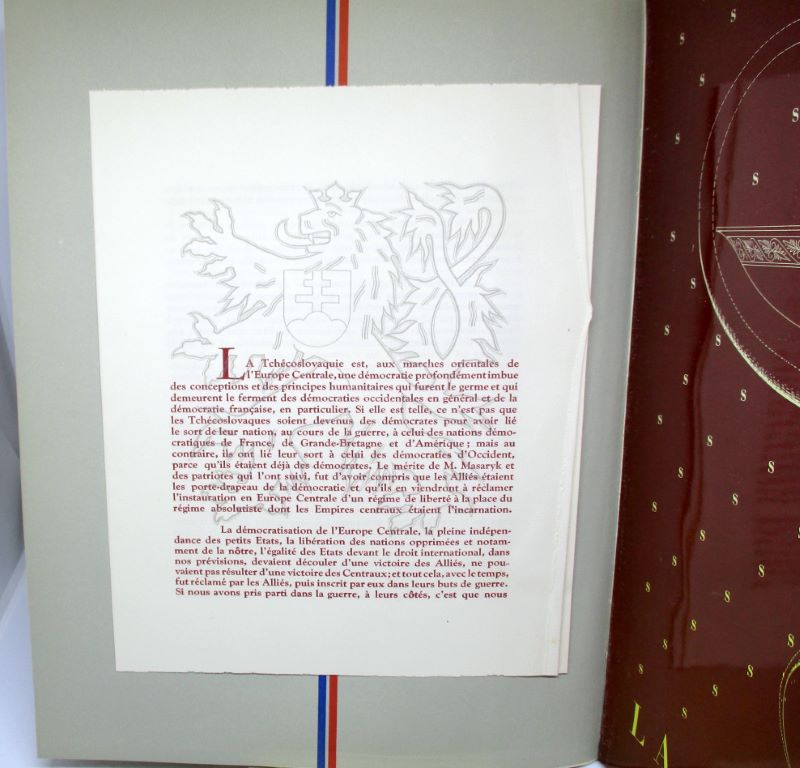 LA Tchécoslovaquie est, aux marches orientales de
l'Europe Centrale, une démocratie profondément imbue
des conceptions et des principes humanitaires qui furent le germe et qui
demeurent le ferment des démocraties occidentales en général et de la
démocratie française, en particulier. Si elle est telle, ce n'est pas que
les Tchécoslovaques soient devenus des démocrates pour avoir lié
le sort de leur nation, au cours de la guerre, à celui des nations démo-
cratiques de France, de Grande-Bretagne et d'Amérique ; mais au
contraire, ils ont lié leur sort à celui des démocraties d'Occident,
parce qu'ils étaient déjà des démocrates. Le mérite de M. Masaryk et
des patriotes qui l'ont suivi, fut d'avoir compris que les Alliés étaient
les porte-drapeau de la démocratie et qu'ils en viendront à réclamer
l'instauration en Europe Centrale d'un régime de liberté à la place du
régime absolutiste dont les Empires centraux étaient l'incarnation.
La démocratisation de l'Europe Centrale, la pleine indépen-
dance des petits Etats, la libération des nations opprimées et notam-
ment de la nôtre, l'égalité des Etats devant le droit international, dans
nos prévisions, devaient découler d'une victoire des Alliés, ne pou-
vaient pas résulter d'une victoire des Centraux ; et tout cela, avec le temps,
fut réclamé par les Alliés, puis inscrit par eux dans leurs buts de guerre.
Si nous avons pris parti dans la guerre, à leurs côtés, c'est que nous
LA